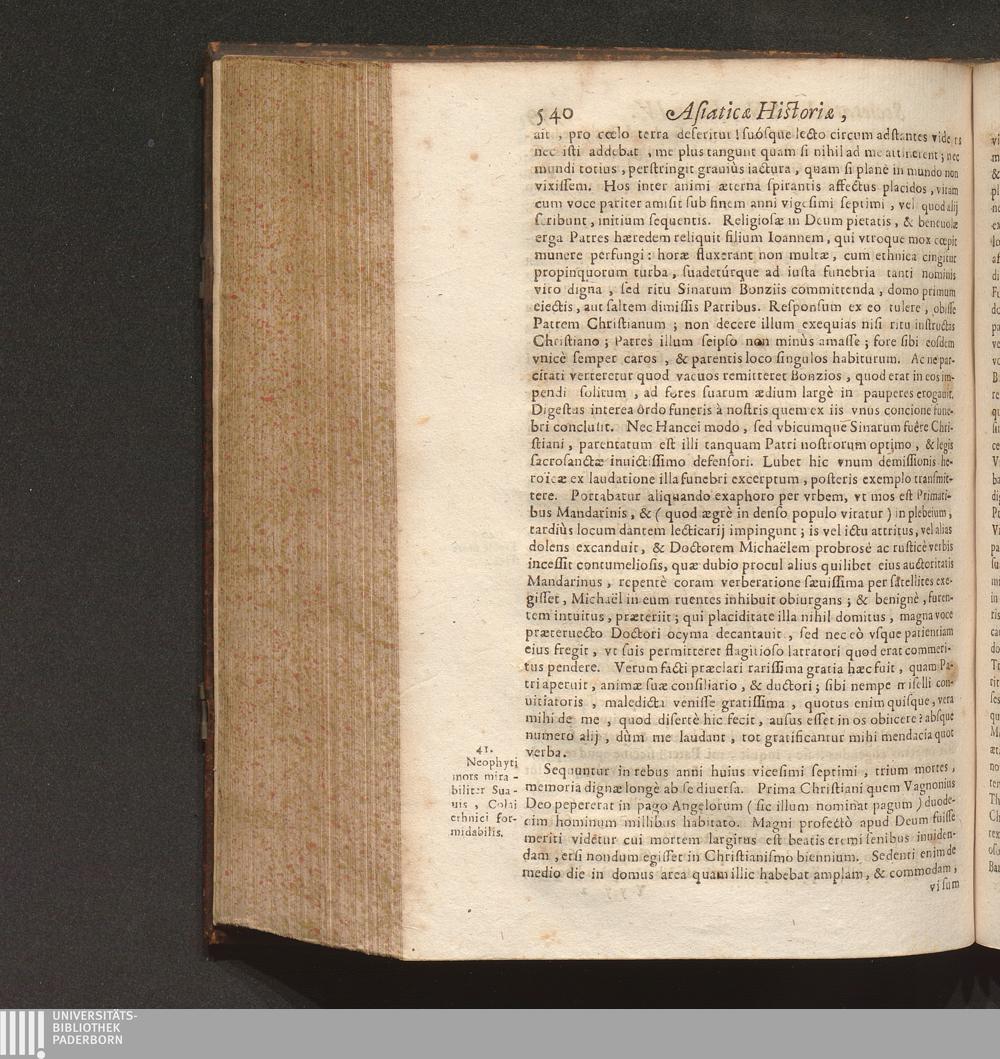 540 Asiaticæ Historiæ,
ait, pro cœlo terra deseritur! suósque lecto circum adstantes videns
nec isti addebat, me plus tangunt quam si nihil ad me attinerent; nec
mundi totius, perstringit grauiùs iactura, quam si planè in mundo non
vixissem. Hos inter animi æterna spirantis affectus placidos, vitam
cum voce pariter amisit sub finem anni vigesimi septimi, vel quod alij
scribunt, initium sequentis. Religiosæ in Deum pietatis, & beneuolæ
erga Patres hæredem reliquit filium Ioannem, qui vtroque mox cœpit
munere perfungi: horæ fluxerant non multæ, cum ethnica cingitur
propinquorum turba, suadetúrque ad iusta funebria tanti nominis
viro digna, sed ritu Sinarum Bonziis committenda, domo primum
eiectis, aut saltem dimissis Patribus. Responsum ex eo tulere, obiisse
Patrem Christianum; non decere illum exequias nisi ritu instructas
Christiano; Patres illum seipso non minùs amasse; fore sibi eosdem
vnicè semper caros, & parentis loco singulos habiturum. Ac ne par-
citati verteretur quod vacuos remitteret Bonzios, quod erat in eos im-
pendi solitum, ad fores suarum ædium largè in pauperes erogauit.
Digestus interea ordo funeris à nostris quem ex iis vnus concione fune-
bri conclusit. Nec Hancei modo, sed vbicumque Sinarum fuêre Chri-
stiani, parentatum est illi tanquam Patri nostrorum optimo, & legis
sacrosanctæ inuictissimo defensori. Lubet hic vnum demissionis he-
roïcæ ex laudatione illa funebri excerptum, posteris exemplo transmit-
tere. Portabatur aliquando exaphoro per vrbem, vt mos est Primati-
bus Mandarinis, & (quod ægrè in denso populo vitatur) in plebeium,
tardiùs locum dantem lecticarij impingunt; is vel ictu attritus, vel alias
dolens excanduit, & Doctorem Michaëlem probrosè ac rusticè verbis
incessit contumeliosis, quæ dubio procul alius quilibet eius auctoritatis
Mandarinus, repentè coram verberatione sæuissima per satellites exe-
gisset, Michaël in eum ruentes inhibuit obiurgans; & benignè, furen-
tem intuitus, præteriit; qui placiditate illa nihil domitus, magna voce
præteruecto Doctori ocyma decantauit, sed nec eò vsque patientiam
eius fregit, vt suis permitteret flagitioso latratori quod erat commeri-
tus pendere. Verum facti præclari rarissima gratia hæc fuit, quam Pa-
tri aperuit, animæ suæ consiliario, & ductori; sibi nempe miselli con-
uitiatoris, maledicta venisse gratissima, quotus enim quisque, vera
mihi de me, quod disertè hic fecit, ausus esset in os obiicere? absque
numero alij, dùm me laudant, tot gratificantur mihi mendacia quot
verba.
41.
Neophyti
mors mira-
biliter Sua-
uis, Colai
ethnici for-
midabilis.
Sequuntur in rebus anni huius vicesimi septimi, trium mortes,
memoria dignæ longè ab se diuersa. Prima Christiani quem Vagnonius
Deo pepererat in pago Angelorum (sic illum nominat pagum) duode-
cim hominum millibus habitato. Magni profectò apud Deum fuisse
meriti videtur cui mortem largitus est beatis eremi senibus inuiden-
dam, etsi nondum egisset in Christianismo biennium. Sedenti enim de
medio die in domus area quam illic habebat amplam, & commodam,
visum
UNIVERSITÄTS-
BIBLIOTHEK
PADERBORN